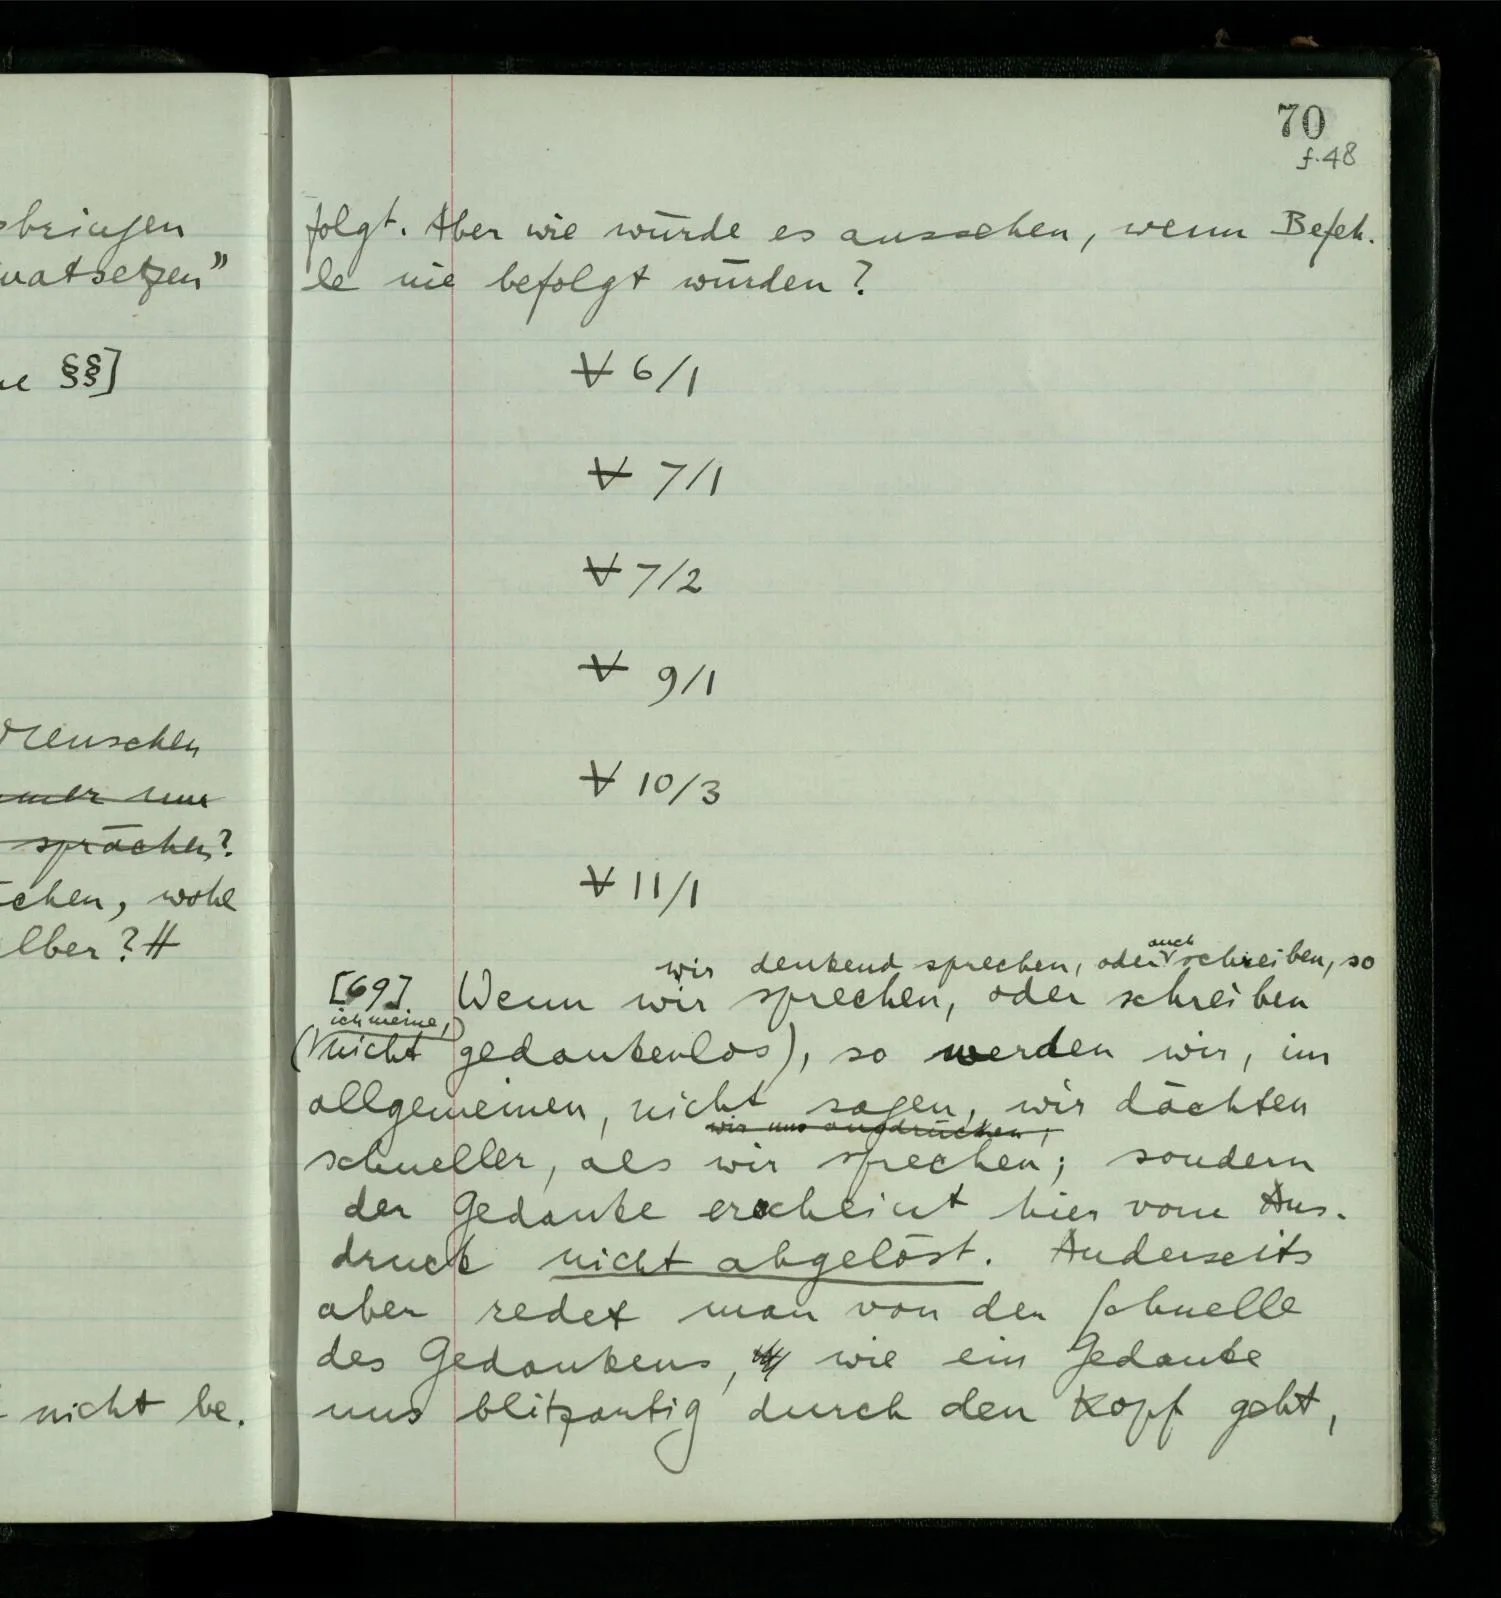 70
f.48
bringen
vatsetzen"
§§]
Menschen
sprächen?
chen, wohl
lber? //
nicht be-
folgt. Aber wie würde es aussehen, wenn Befeh-
le nie befolgt würden?
∀ 6/1
∀ 7/1
∀ 7/2
∀ 9/1
∀ 10/3
∀ 11/1
wir denkend sprechen, oder auch schreiben, so
[69] Wenn wir sprechen, oder schreiben
(ich meine, nicht gedankenlos), so werden wir, im
allgemeinen, nicht sagen, wir dächten
wir uns ausdrücken;
schneller, als wir sprechen; sondern
der Gedanke erscheint hier vom Aus-
druck nicht abgelöst. Anderseits
aber redet man von der Schnelle
des Gedankens, wie ein Gedanke
uns blitzartig durch den Kopf geht,